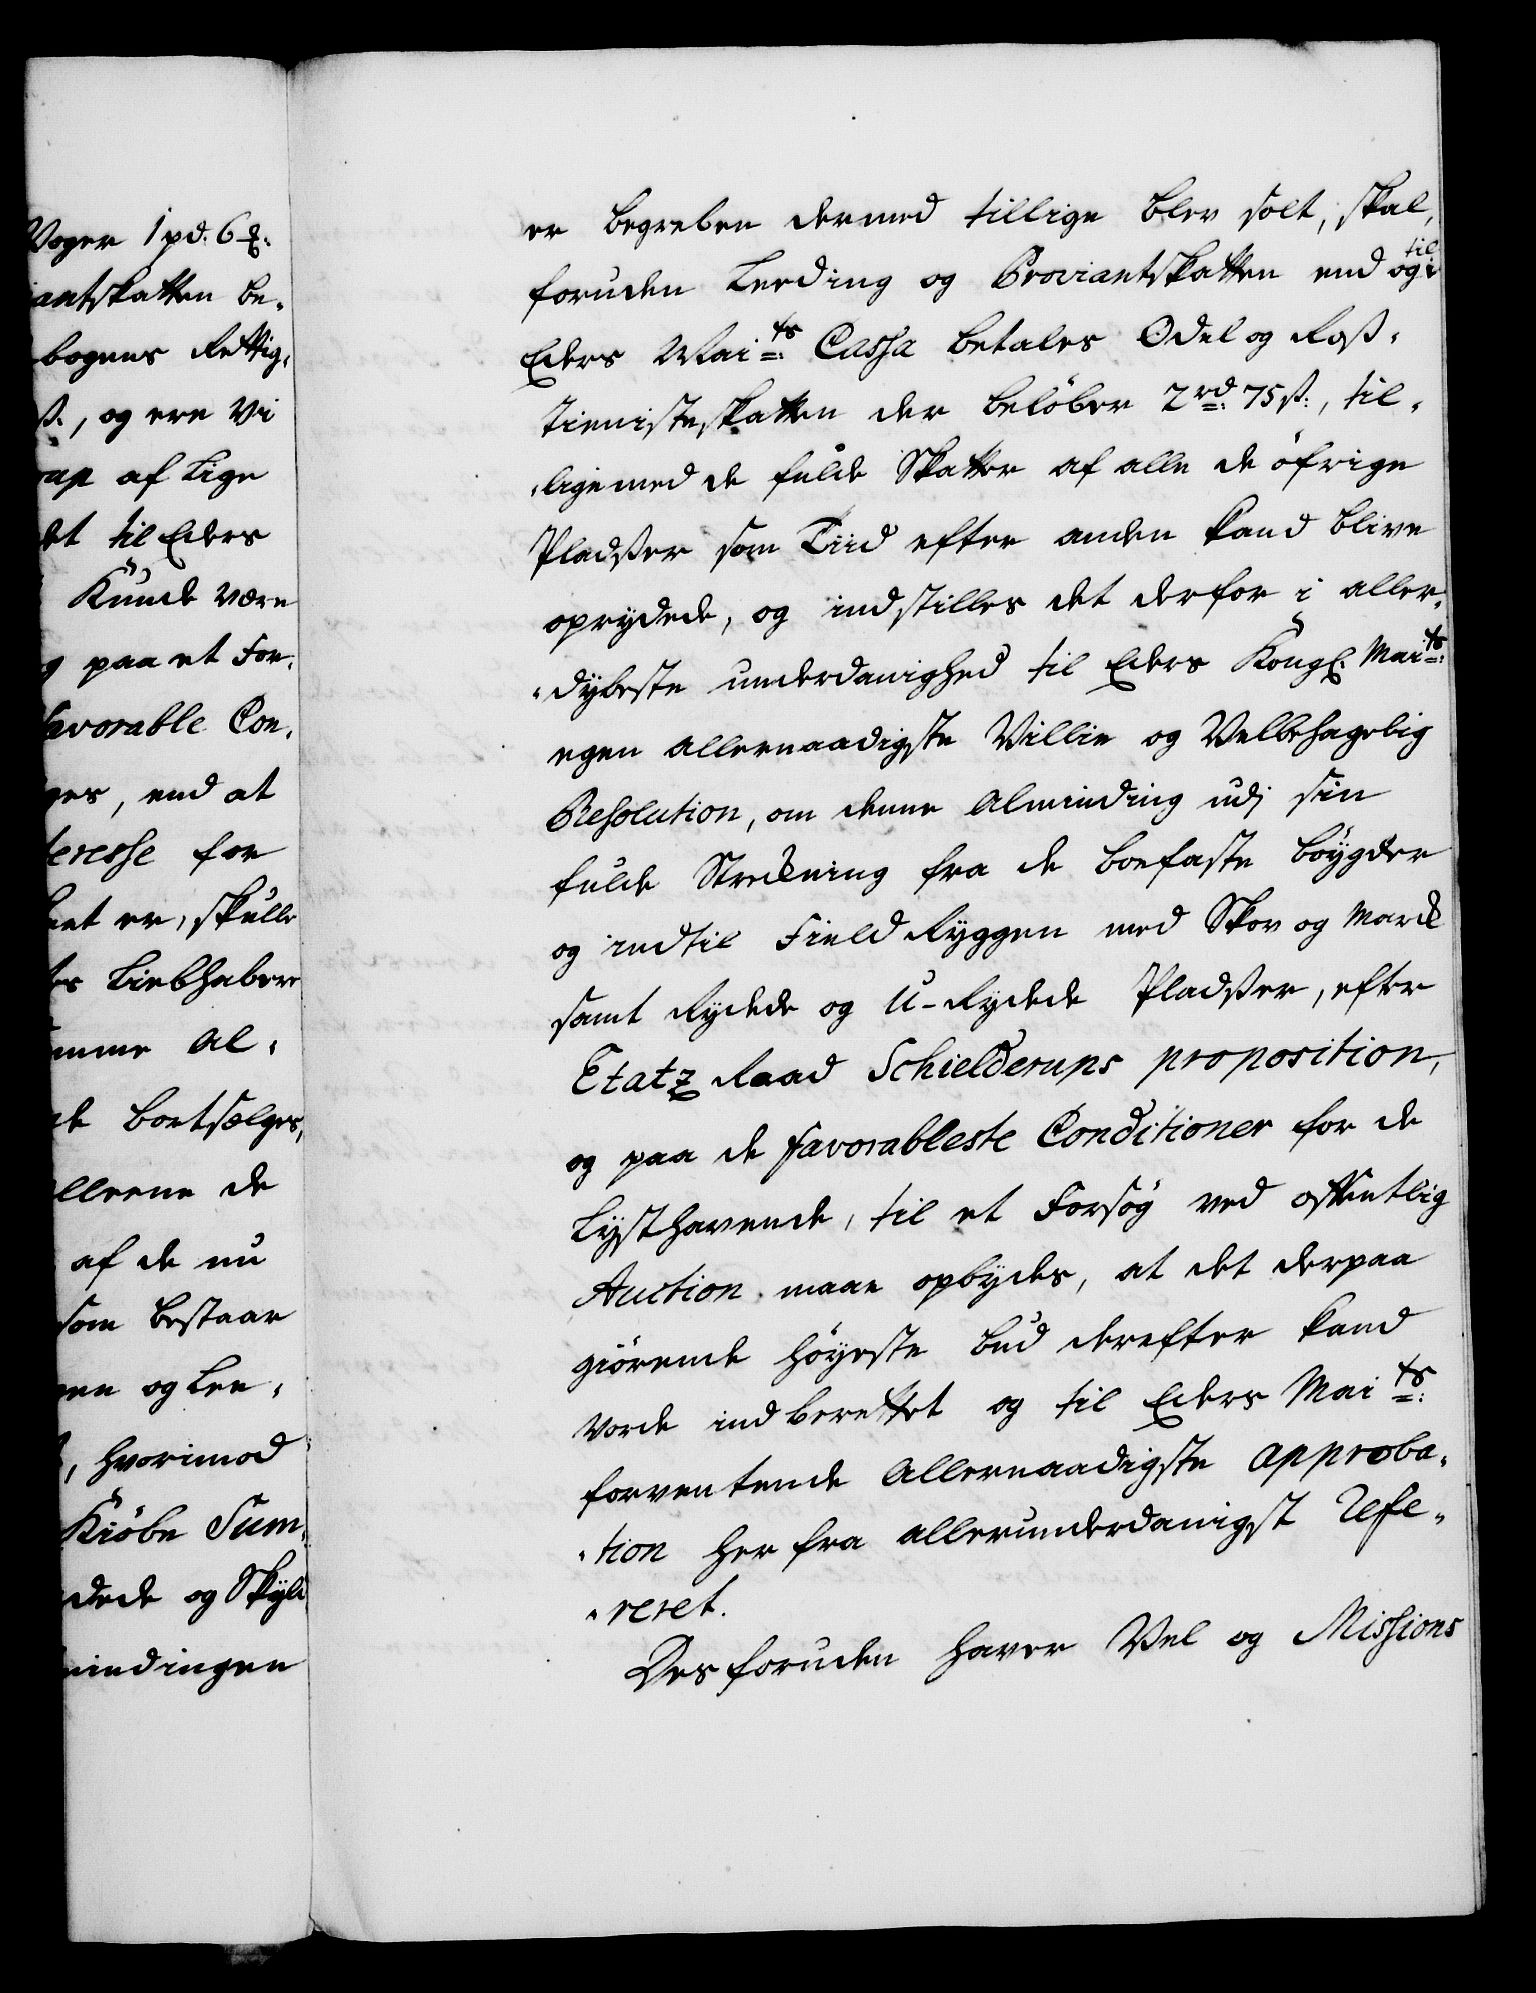 Voger 1 pd. 6
antskatten be,
bogens Rettig,
ß., og ere Vi
rup af Lige
det til Eders
Kunde være
g paa et For,
favorable Con,
ges, end at
teresse for
het er, skulle
es Liebhabere
mme Al,
de bortsælges,
llerne de
af de nu
som bestaar
en og Lee,
, hvorimod
Kiöbe Sum,
dede og Skyld
mindingen
er begreben dermed tillige blev solt, skal,
foruden Leeding og Proviantskatten end og til
Eders Maits: Cassa betales Odel og Roß,
tienisteskatten der belöber 2 rd: 75 ß:, til,
,lige med de fulde Skatter af alle de öfrige
Pladser som Tiid efter anden kand blive
oprydede, og indstilles det derfor i aller,
,dybeste underdanighed til Eders Kongl. Maits:
egen allernaadigste Villie og Velbehagelig
Resolution, om denne Alminding udj sin
fulde Strekning fra de boefaste böygder
og indtil Field Ryggen med Skov og Mark
samt Rydede og U-Rydede Pladser, efter
Etatz Raad Schielderups proposition,
og paa de favorableste Conditioner for de
Lysthavende, til et Forsög ved offentlig
Auction maae opbydes, at det derpaa
giörende höyeste bud derefter kand
vorde indberettet og til Eders Maits:
forventende allernaadigste approba,
,tion her fra allerunderdanigst Refe,
,reret.
Desforuden haver Vel og Missions